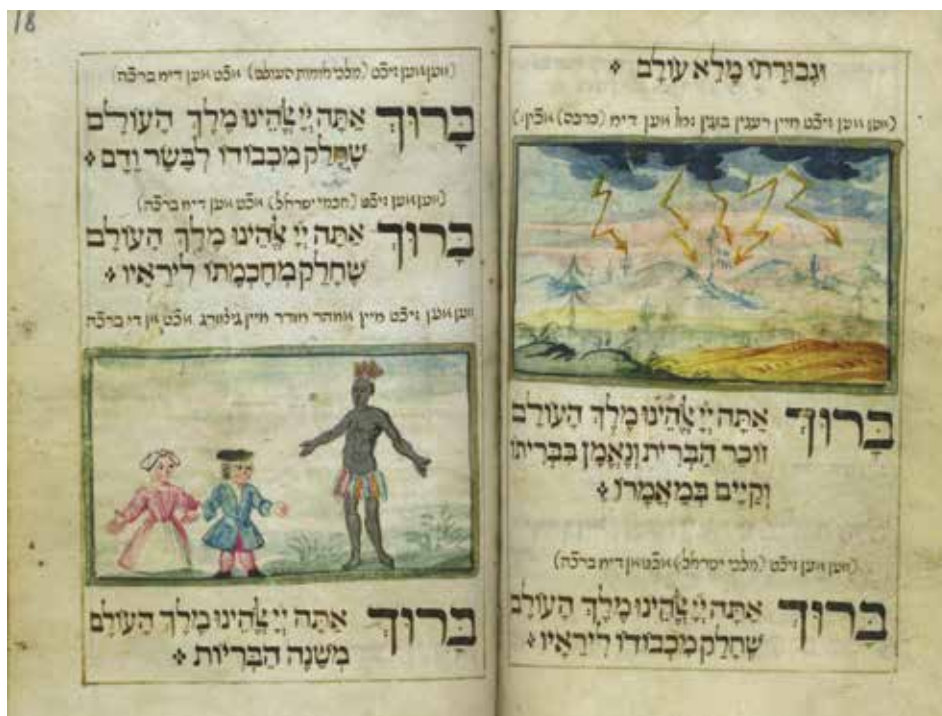 18
וּגְבוּרָתוֹ מָלֵא עוֹלָם
(ווען מען זיכט איין רעגין בוגין מען (ברכה)
בָּרוּךְ אַתָּה יְיָ אֱלֹהֵינוּ מֶלֶךְ הָעוֹלָם
זוֹכֵר הַבְּרִית וְנֶאֱמָן בִּבְרִיתוֹ
וְקַיָּים בְּמַאֲמָרוֹ
(ווען מען זיכט (מלכי ישראל) ברכה)
בָּרוּךְ אַתָּה יְיָ אֱלֹהֵינוּ מֶלֶךְ הָעוֹלָם
שֶׁחָלַק מִכְּבוֹדוֹ לִירֵאָיו
(ווען מען זיכט (מלכי אומות העולם) מען ברכה)
בָּרוּךְ אַתָּה יְיָ אֱלֹהֵינוּ מֶלֶךְ הָעוֹלָם
שֶׁחָלַק מִכְּבוֹדוֹ לְבָשָׂר וָדָם
(ווען מען זיכט (חכמי ישראל) מען ברכה)
בָּרוּךְ אַתָּה יְיָ אֱלֹהֵינוּ מֶלֶךְ הָעוֹלָם
שֶׁחָלַק מֵחָכְמָתוֹ לִירֵאָיו
ווען מען זיכט איין מוהר אודר איין די ברכה
בָּרוּךְ אַתָּה יְיָ אֱלֹהֵינוּ מֶלֶךְ הָעוֹלָם
מְשַׁנֶּה הַבְּרִיּוֹת